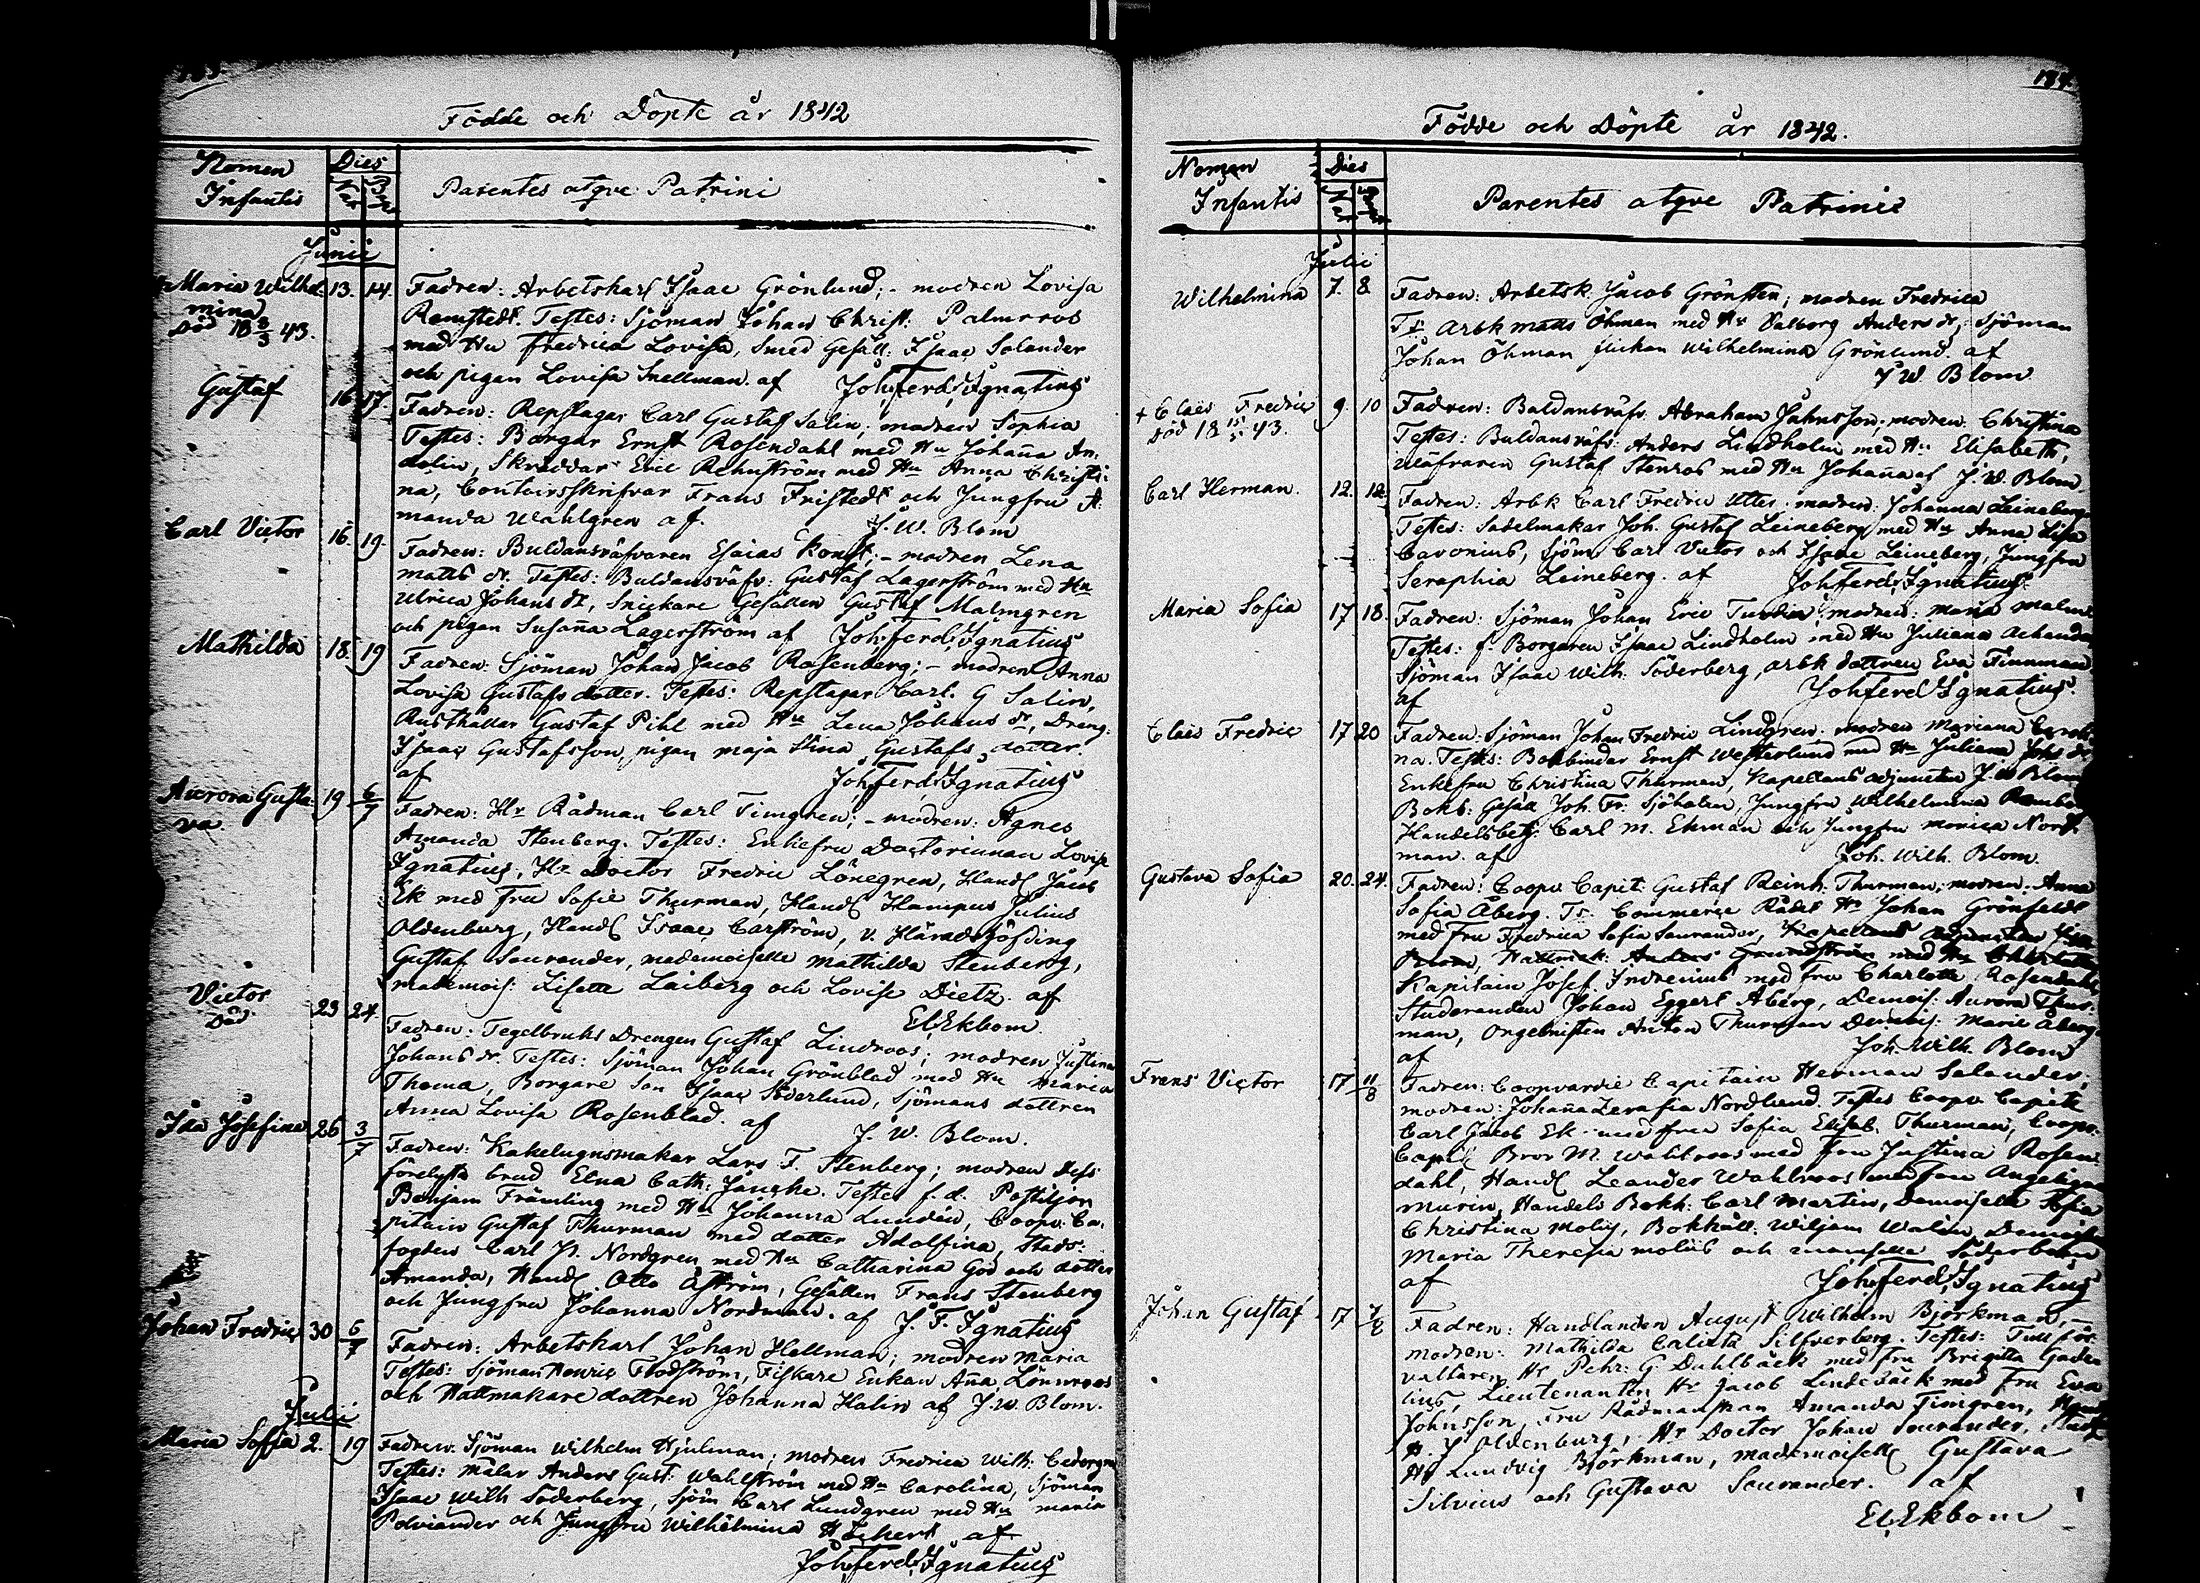 Födde och Döpte år 1842
Nomen Infantis
Dies
Parentes atqve Patrini
Junii
Maria Wilhel-
mina
Död 18 8/3 43.
13. 14.
Fadren: Arbetskarl Isaac Grönlund; - modren Lovisa
Renstedt. Testes: Sjöman Johan Christ: Palmroos
med Hu Fredrica Lovisa, Smed Gesäll: Isaac Solander
och pigan Lovisa Snellman. af Joh. Ferd. Ignatius
Gustaf
16. 17.
Fadren: Repslagar Carl Gustaf Salin; modren Sophia
Testes: Borgar Ernst Rosendahl med Hu Johanna An-
dolin, Skräddar Eric Rehnström med Hu Anna Christi-
na, Contoirsskrifvar Frans Fristedt och Jungfru A-
manda Wahlgren af. J. W. Blom
Carl Victor
16. 19.
Fadren: Buldansväfvaren Esaias Konst; - modren Lena
Matts dr. Testes: Buldansväfv: Gustaf Lagerström med Hu
Ulrica Johans dr, Snickare Gesällen Gustaf Malmgren
och pigan Susanna Lagerström af Joh. Ferd. Ignatius
Mathilda
18. 19
Fadren: Sjöman Johan Jacob Rosenberg; - modren Anna
Lovisa Gustafs dotter. Testes: Repslagar Carl. G Salin,
Rusthållar Gustaf Pihl med Hu Lena Johans dr, Dreng:
Isaac Gustafsson, pigan Maja Stina Gustafs dotter
af Joh. Ferd. Ignatius
Aurora Gusta-
va.
19 6/7
Fadren: Hr Rådman Carl Timgren; - modren: Agnes
Amanda Stenberg. Testes: Enkefru Doctorinnan Lovise
Ignatius, Hr Doctor Fredric Lönegren, Handl Jacob
Ek med Fru Sofie Thurman, Handl Hampus Julius
Oldenburg, Handl Isaac Carström, v. Häradshöfding
Gustaf Sourander, mademoiselle Mathilda Stenberg,
mademois: Lisette Laiberg och Lovise Dietz. af
El. Ekbom.
Victor
Död
23 24.
Fadren: Tegelbruks Drengen Gustaf Lindroos; modren Justina
Johans dr. Testes: Sjöman Johan Grönblad med Hu Maria
Thoma, Borgare Son Isaac Söderlund, Sjömans dottren
Anna Lovisa Rosenblad. af J. W. Blom.
Ida Josefina
26 3/7
Fadren: Kakelugnsmakar Lars F. Stenberg; modren dess
forelysta brud Elna Cath: Jancke. Testes f. d. Postiljon
Benjam Främling med Hu Johanna Lundén, Coopv. Ca-
pitain Gustaf Thurman med dotter Adolfina, Stads-
fogden Carl P. Nordgren med Hu Catharina God och dotter
Amanda, Handl Otto Åström, Gesällen Frans Stenberg
och Jungfru Johanna Nordman. af J. F. Ignatius
Johan Fredric
30 5/7
Fadren: Arbetskarl Johan Hellman; modren Maria
Testes: Sjöman Henric Flodström, Fiskare Enkan Anna Lönnroos
och Hattmakare dottren Johanna Holm af J. W. Blom.
Julii
Maria Sofia
2. 19
Fadren: Sjöman Wilhelm Hjulman; modren Fredrica Wilh: Cedergren
Testes: Målar Anders Gust: Wahlström med Hu Carolina, Sjöman
Isaac Wilh Söderberg, Sjöm Carl Lundgren med Hu Maria
Polviander och Jungfru Wilhelmina af
Joh. Ferd. Ignatius
Födde och Döpte år 1842.
Nomen Infantis
Dies
Parentes atqve Patrini
Julii
Wilhelmina
7. 8
Fadren: Arbetsk. Jacob Grönsten; modren Fredrica
Ts: Arbk Matts Öhman med Hu Valborg Anders dr, Sjöman
Johan Öhman flickan Wilhelmina Grönlund. af
J W. Blom
+ Claës Fredric
Död 18 15/5 43.
9. 10
Fadren: Buldansväfv. Abraham Jahnsson; modren Christina
Testes: Buldansväfv: Anders Lindholm med Hu: Elisabeth,
Väfvaren Gustaf Stenroos med Hu Johanna af J. W. Blom.
Carl Herman.
12. 12.
Fadren: Arbk Carl Fredric Utter modren: Johanna Leineberg
Testes: Sadelmakar Joh. Gustaf Leineberg med Hu Anna Lisa
Cavonius, Sjöm Carl Victor och Isaac Leineberg, Jungfru
Seraphia Leineberg. af Joh. Ferd. Ignatius.
Maria Sofia
17 18.
Fadren: Sjöman Johan Eric modren: Maria Malm
Testes: f. Borgaren Isaac Lindholm med Hu Juliana
Sjöman Isaac Wilh: Söderberg, arbk dottren Eva Finnman
af Joh. Ferd Ignatius.
Claës Fredric
17 20
Fadren: Sjöman Johan Fredric Lindgren. modren Mariana Caroli-
na. Testes: Bokbindar Ernst Westerlund med Hu Juliana Johs dr
Enkefru Christina Thurman, Kapellans adjuncten J. W Blom
Bokb: Gesäll Joh. Fr. Sjöholm, Jungfru Wilhelmina
Handelsbetj: Carl M. Ekman och Jungfru Monica Nord-
man. af Joh. Wilh. Blom.
Gustava Sofia
20. 24.
Fadren: Coopv. Capit: Gustaf Reinh. Thurman, modren. Anna
Sofia Åberg. Ts. Commerce Rådet Hr Johan Grönfeldt
med Fru Fredrica Sofia Sourander,
Kapitain Josef Indrenius med fru Charlotta Rosendahl
Studeranden Johan Eggert Åberg, Demois: Aurora Thur-
man, Orgelnisten Anton Thurman Demois: Marie Åberg.
af Joh. Wilh. Blom
Frans Victor
17 11/8
Fadren: Coopvardie Capitain Herman Selander;
modren: Johanna Zerafia Nordlund. Testes Coopv Capit
Carl Jacob Ek med fru Sofia Elisab. Thurman, Coopv.
Capit Bror M. Wahlroos med Fru Justina Rosen-
dahl, Handl Leander Wahlroos med fru Angelique
Murin, Handels Bokh: Carl Martin, Demoiselle Sofia
Christina Molis, Bokhåll: Wiljam Walin, Demoiselle
Maria Theresia Moliis och mamselle Söderbom
af Joh. Ferd. Ignatius
Johan Gustaf
17 7/8
Fadren: Handlanden August Wilhelm Björkman, -
modren: Mathilda Calixta Silfverberg. Testes: Tullför-
valtaren Hr Pehr: G. Dahlbäck med fru Brigitta Gado-
lins, Lieutenanten Hr Jacob Lindebäck med Fru Eva
Johnsson, Fru Rådmanskan Amanda Timgren,
H. J Oldenburg, Hr Doctor Johan Sourander,
Hr Lundvig Björkman, mademoiselle Gustava
Silvius och Gustava Sourander. af
El. Ekbom